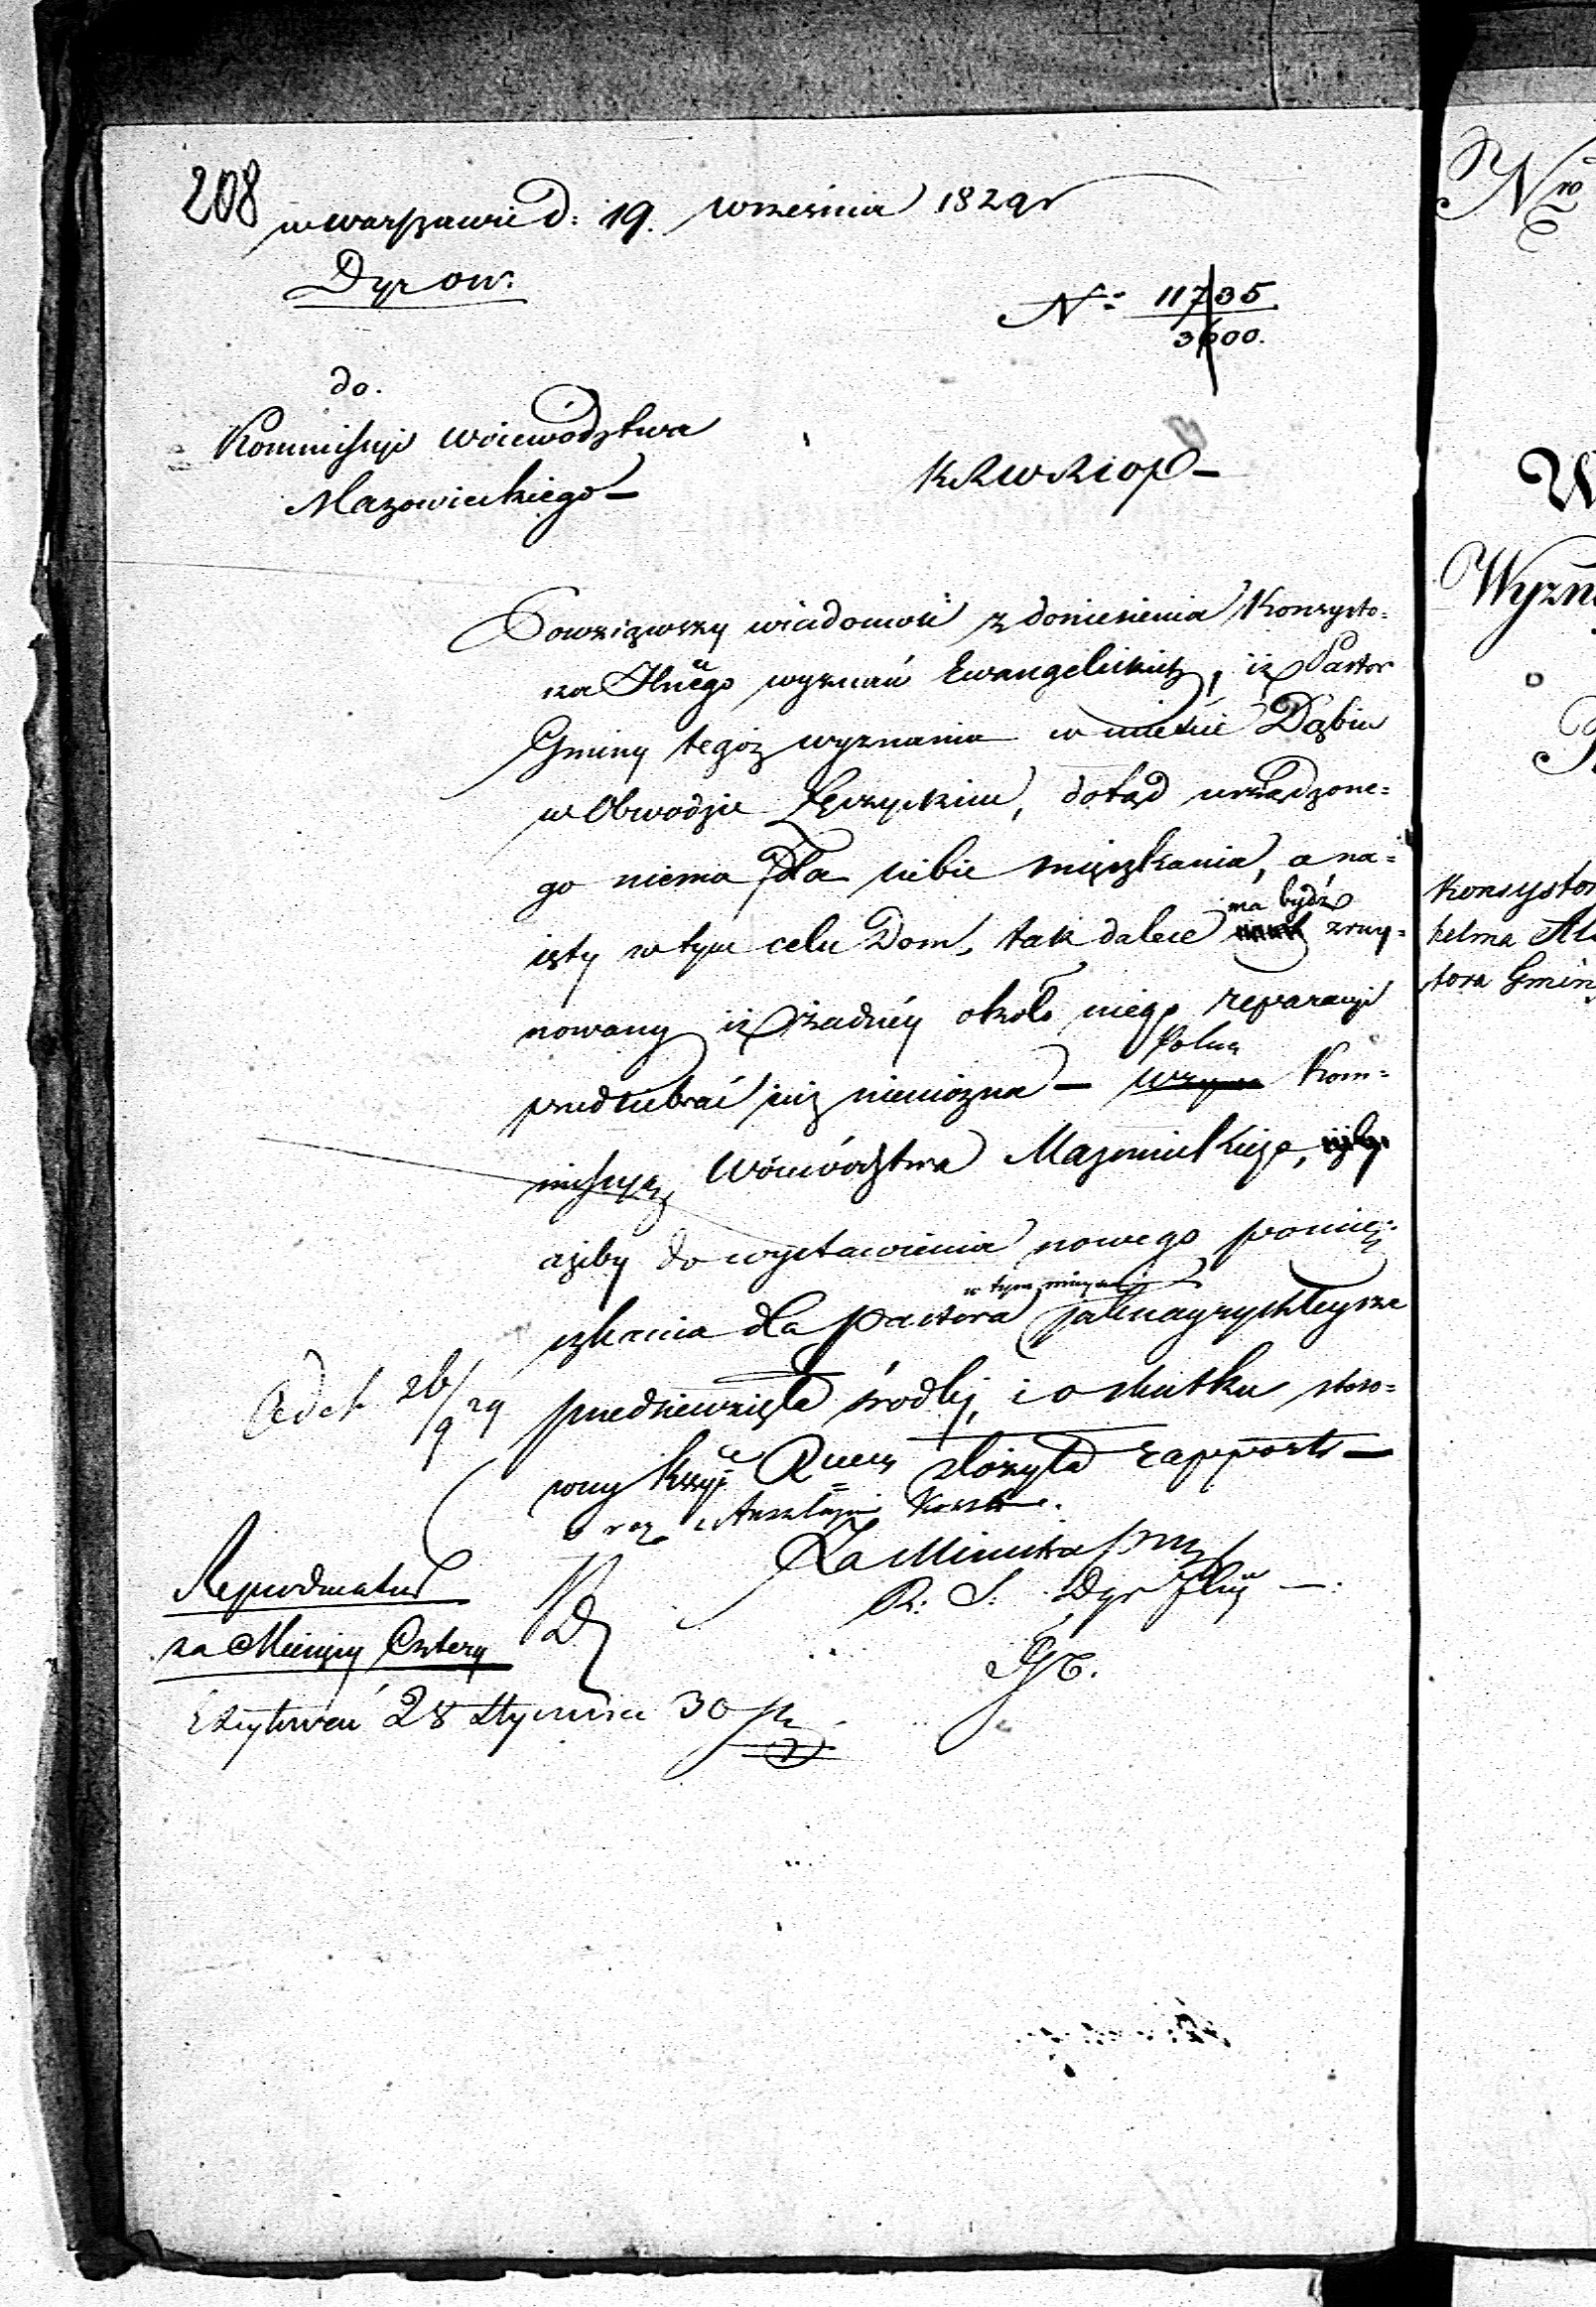 208
w Warszawie d: 19. Września 1829 r
Dyr ow:
Nº 11735
3600.
do.
Kommissyi Woiewództwa
Mazowieckiego —
K R W R i O P —
Powziąwszy wiadomość z doniesienia Konsysto=
rza Głnego wyznań Ewangelickich, iż Pastor
Gminy tegoż wyznania w mieście Dąbiu
w Obwodzie Łęczyckim, dotąd urządzone=
go niema dla siebie mieszkania, a na=
ięty w tym celu Dom, tak dalece ma bydź zruy=
nowany iż żadnéy około niego reparacyi
przedsiebrać iuż niemożna — Poleca Kom=
missyi Woiewództwa Mazowieckiego,
ażeby do wystawienia nowego pomie=
szkania dla Pastora w tym mieście jaknayrychleysze
przedsiewzięła środki, i o skutku stoso=
wny Kssyi Rząwey złożyła rapport —
oraz Kosztów.
Za Ministra Prez.
R. S. Dyr Jlny —
Redct 26/9 29
Reproducatur
za Miesięcy Cztery
Exzytować 28 Stycznia 30 r
Nro
W
Wyzn
Konsystor
helma Al
tora Gmin